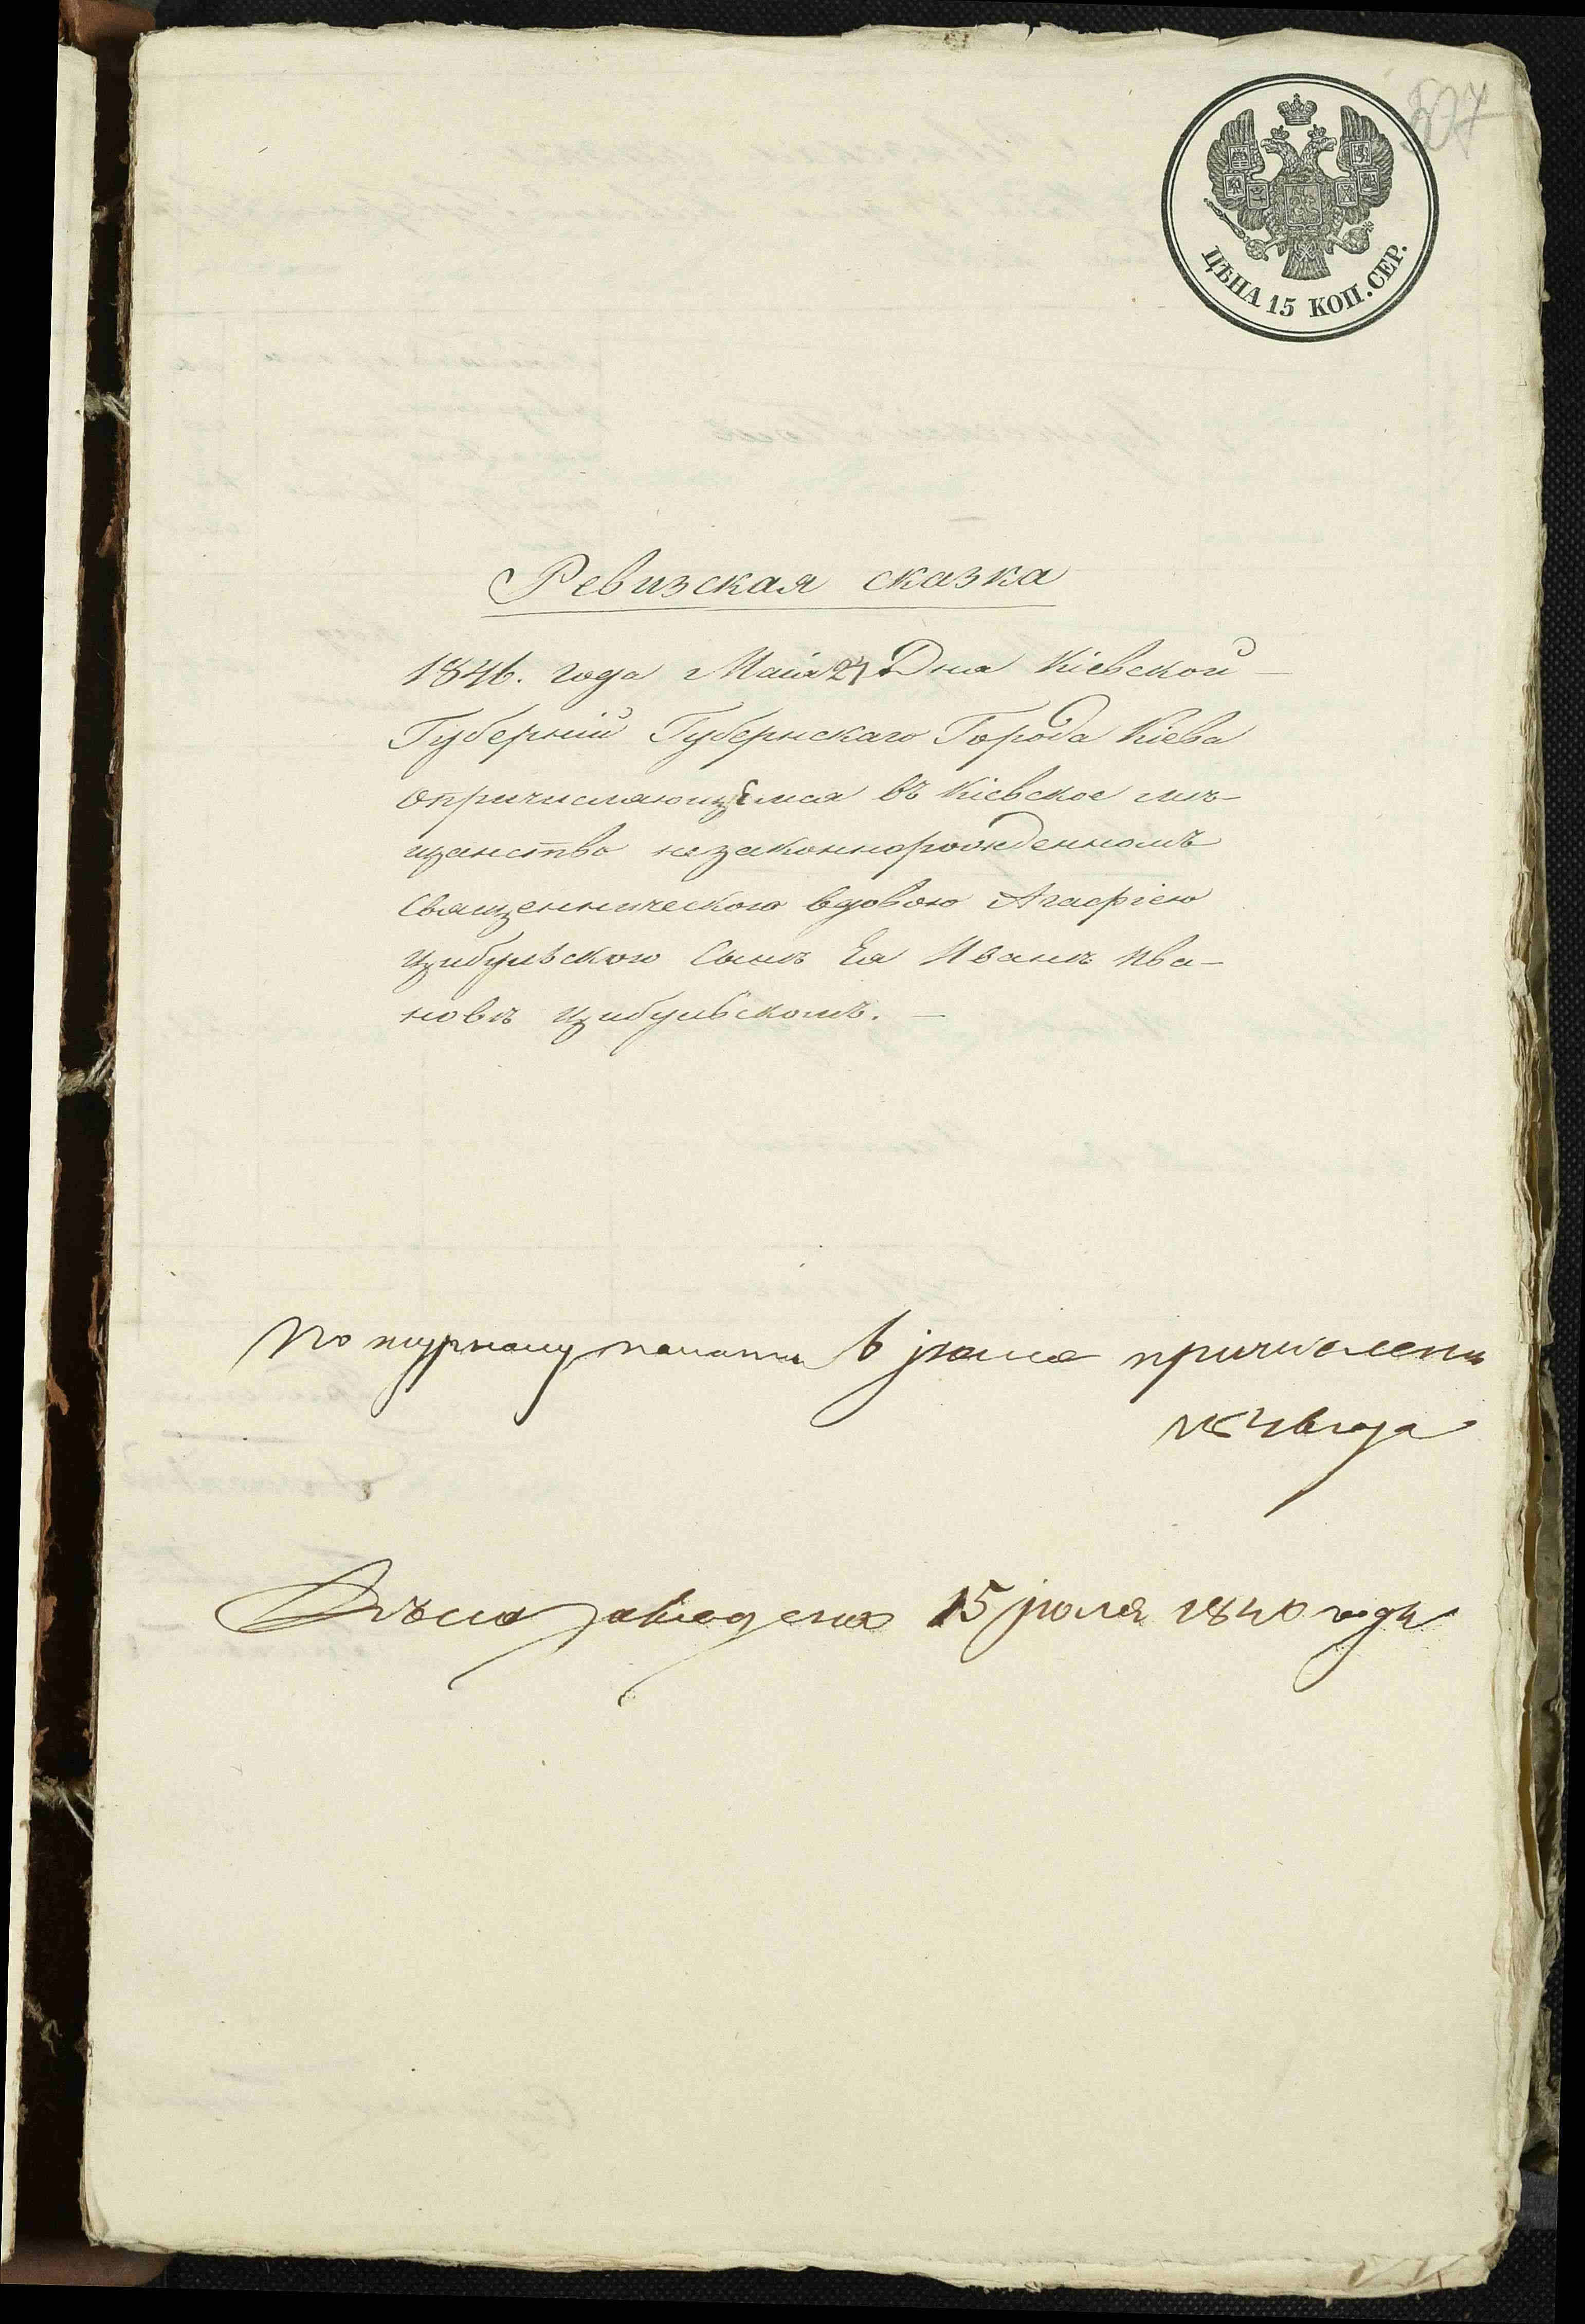 507
ЦѢНА 15 КОП. СЕР.
Ревизская сказка
1846. года Маія 24 Дня Кіевской
Губерніи Губернскаго Города Кіева
опричисляющемся въ Кіевское мѣ-
щанство незаконнорожденномъ
Священническою вдовою Агафіею
Цибульскою Сынъ Ея Иванъ Ива-
новъ Цибульскомъ. —
По журналу палаты в причисленъ
года
15 іюля 1840 года